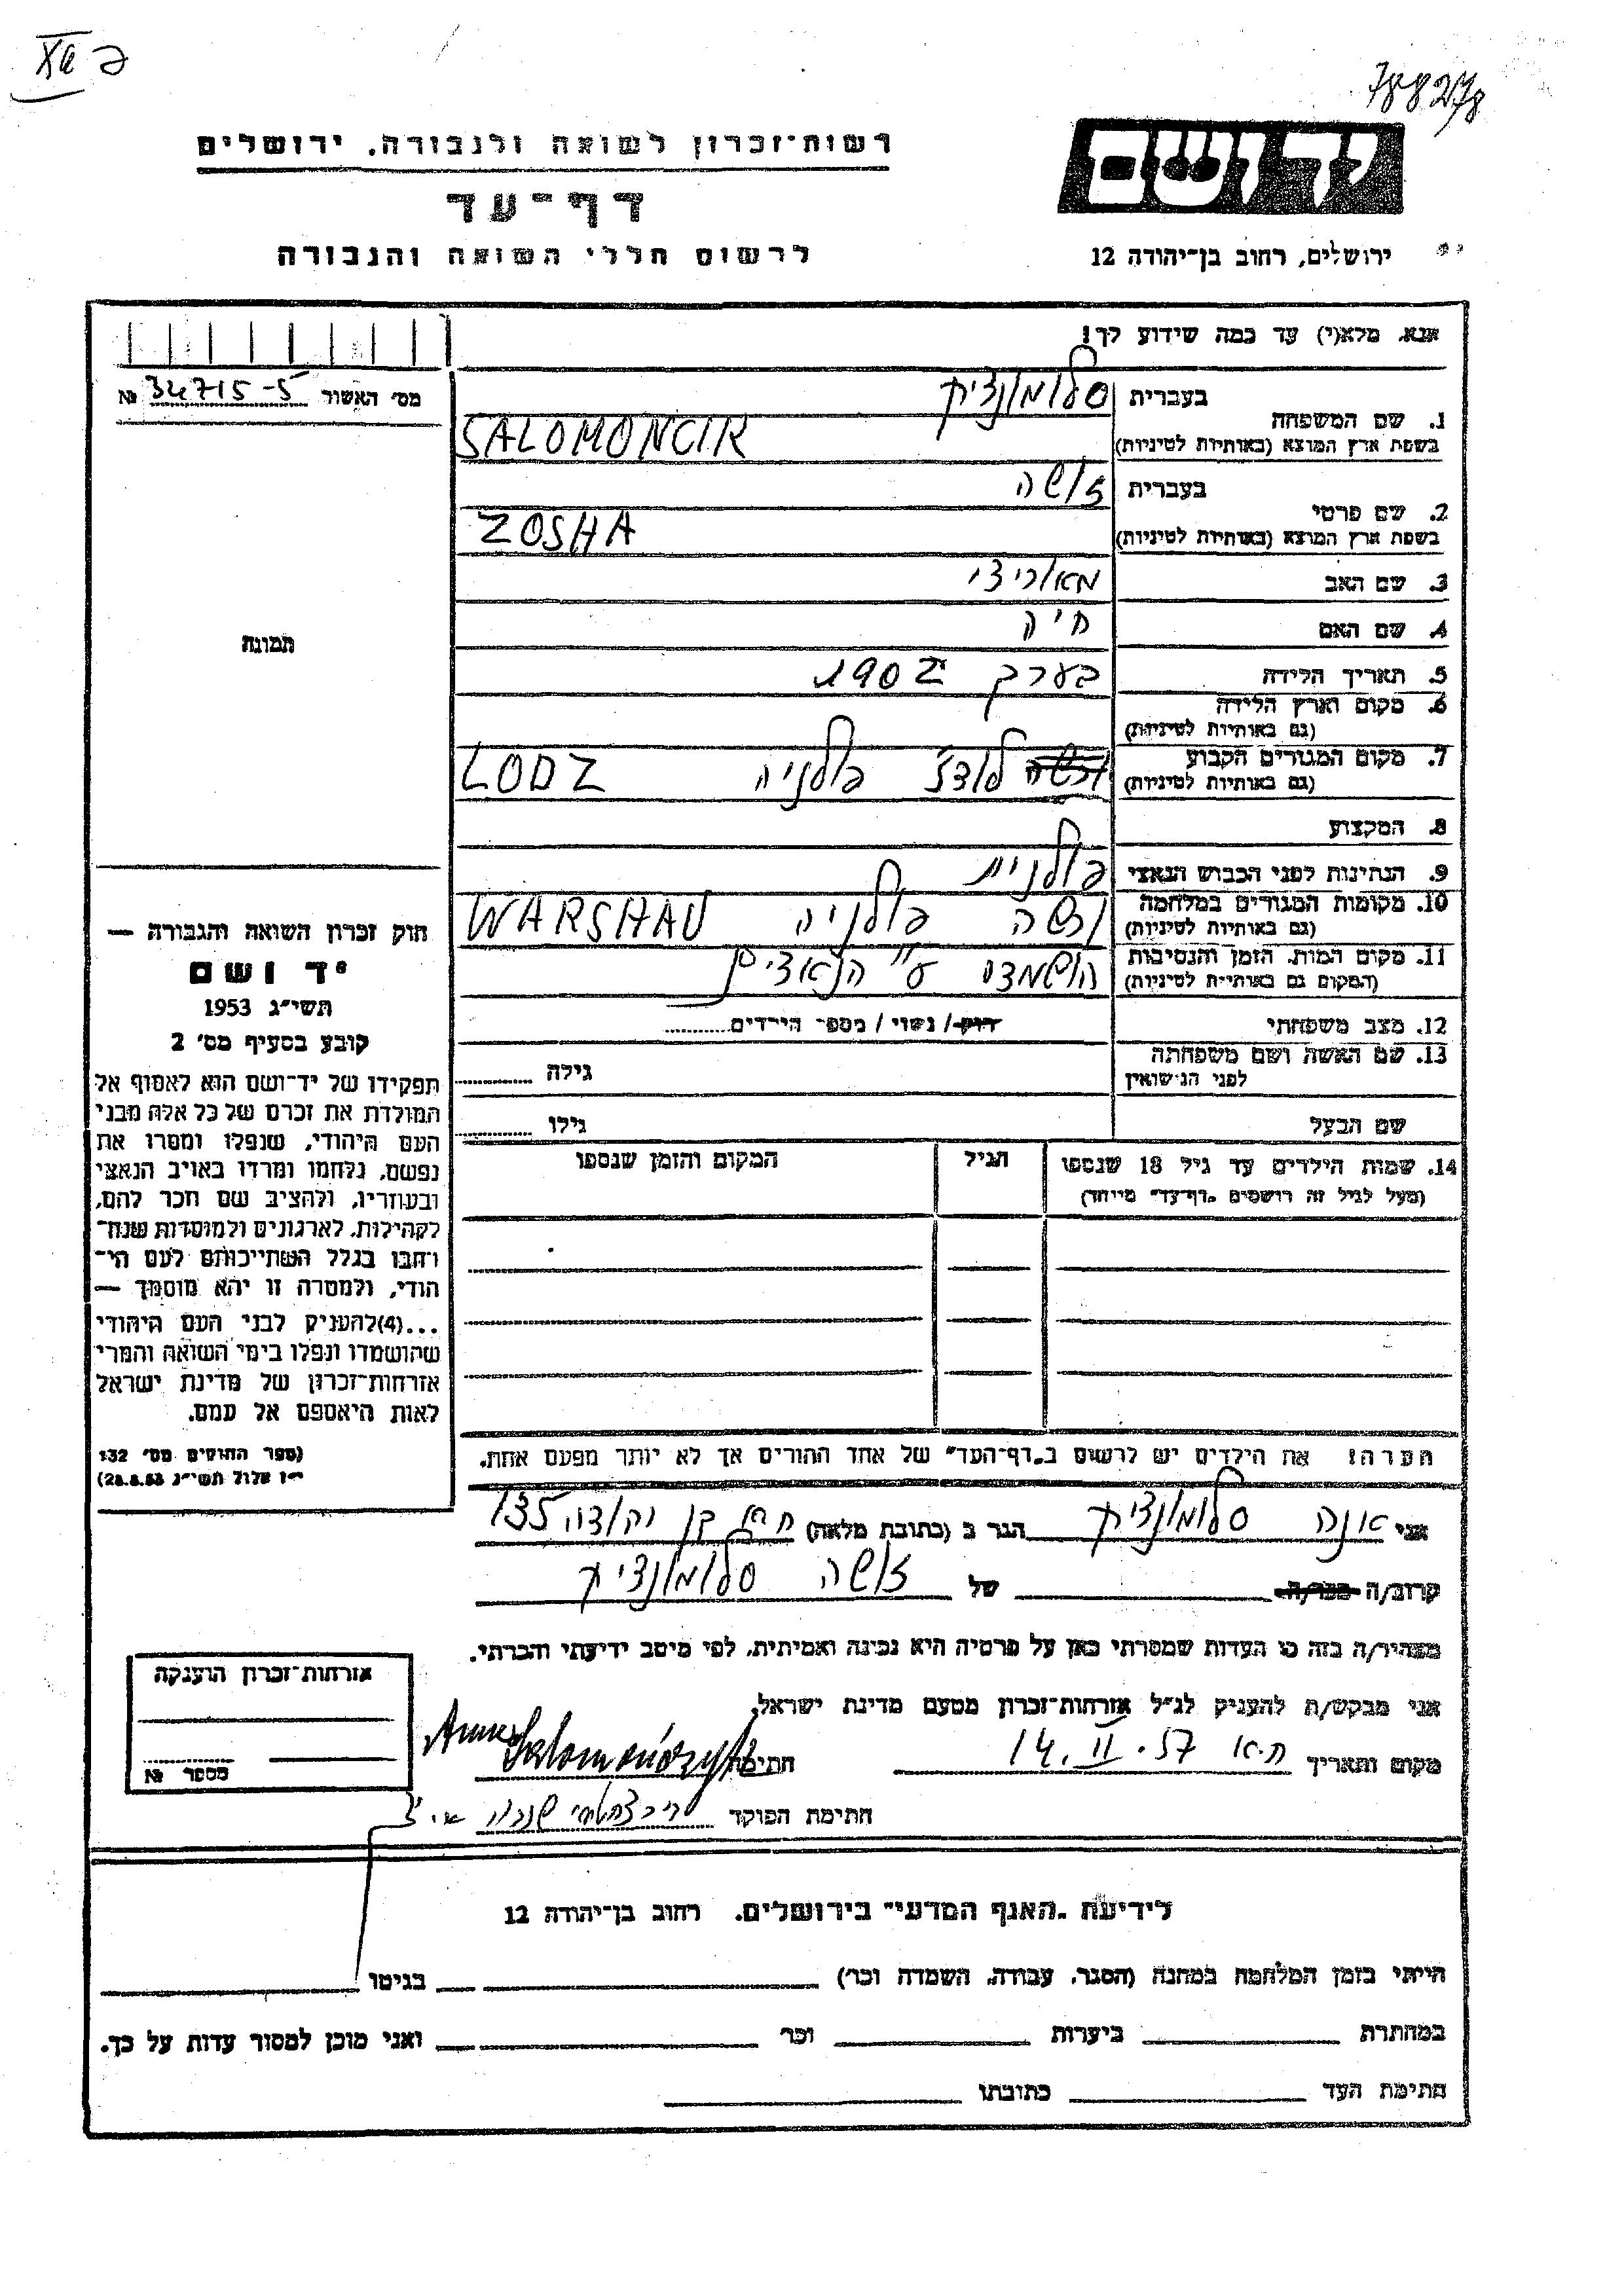 78827/8
רשות־זכרון לשואה ולגבורה, ירושלים
דף־עד
לרשום חללי השואה והגבורה
יד ושם
ירושלים, רחוב בן־יהודה 12
אנא, מלא(י) עד כמה שידוע לך!
מס׳ האשור 34715-5 №
1. שם המשפחה
בעברית סלומונציק
בשפת ארץ המוצא (באותיות לטיניות) SALOMONCIK
2. שם פרטי
בעברית זושה
בשפת ארץ המוצא (באותיות לטיניות) ZOSHA
3. שם האב מאוריצי
4. שם האם חיה
5. תאריך הלידה בערך 1902
6. מקום וארץ הלידה
(גם באותיות לטיניות)
7. מקום המגורים הקבוע ורשה לודז׳ פולניה LODZ
(גם באותיות לטיניות)
8. המקצוע
9. הנתינות לפני הכבוש הנאצי פולנית
10. מקומות המגורים במלחמה ורשה פולניה WARSHAU
(גם באותיות לטיניות)
11. מקום המות, הזמן והנסיבות הושמדה ע״י הנאצים
(המקום גם באותיות לטיניות)
12. מצב משפחתי רוק/ נשוי / מספר הילדים
13. שם האשה ושם משפחתה גילה
לפני הנישואין
שם הבעל גילו
14. שמות הילדים עד גיל 18 שנספו הגיל המקום והזמן שנספו
(מעל לגיל זה רושמים „דף־עד״ מיוחד)
תמונה
חוק זכרון השואה והגבורה —
יד ושם
תשי״ג 1953
קובע בסעיף מס׳ 2
תפקידו של יד־ושם הוא לאסוף אל
המולדת את זכרם של כל אלה מבני
העם היהודי, שנפלו ומסרו את
נפשם, נלחמו ומרדו באויב הנאצי
ובעוזריו, ולהציב שם וזכר להם,
לקהילות, לארגונים ולמוסדות שנח־
רבו בגלל השתייכותם לעם הי־
הודי, ולמטרה זו יהא מוסמך —
...(4)להעניק לבני העם היהודי
שהושמדו ונפלו בימי השואה והמרי
אזרחות־זכרון של מדינת ישראל
לאות היאספם אל עמם.
(ספר החוקים מס׳ 132
י״ז אלול תשי״ג 28.8.53)
הערה: את הילדים יש לרשום ב„דף־העד״ של אחד ההורים אך לא יותר מפעם אחת.
אני אנה סלומונציק הגר ב (כתובת מלאה) בן יהודה 135
קרוב/ה מכר/ה של זושה סלומונציק
מצהיר/ה בזה כי העדות שמסרתי כאן על פרטיה היא נכונה ואמיתית, לפי מיטב ידיעתי והכרתי.
אני מבקש/ת להעניק לנ״ל אזרחות־זכרון מטעם מדינת ישראל.
מקום ותאריך ת״א 14.II.57 חתימה Anna Salomończyk
חתימת הפוקד
אזרחות־זכרון הוענקה
מספר №
לידיעת „האגף המדעי״ בירושלים, רחוב בן־יהודה 12
הייתי בזמן המלחמה במחנה (הסגר, עבודה, השמדה וכו׳) בגיטו
במחתרת ביערות וכו׳ ואני מוכן למסור עדות על כך.
חתימת העד כתובתו